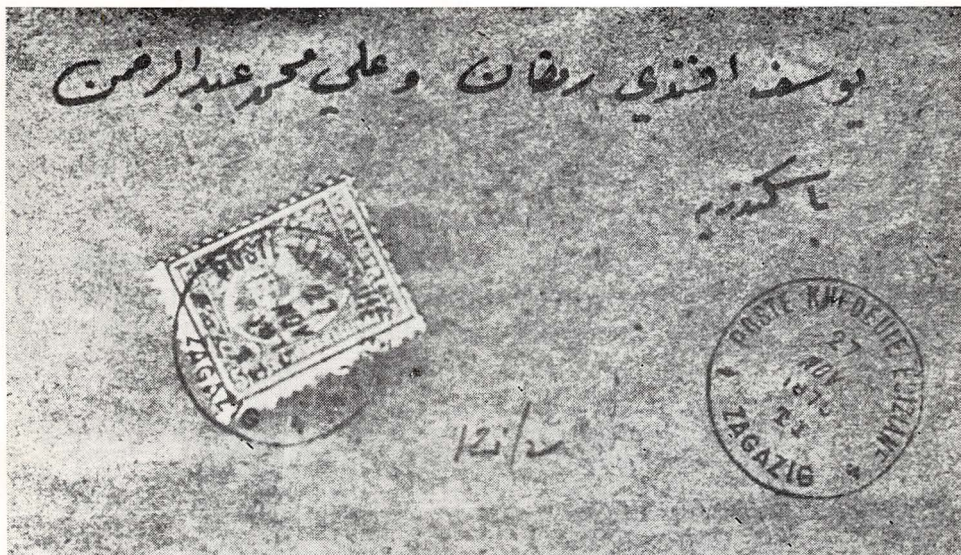 يوسف افندي رمضان وعلي محمد عبدالرحمن
باسكندريه
POSTE
27
NOV
ZAGAZIG
POSTE KHEDEUIE EGIZIANE
27
NOV
187
ZAGAZIG